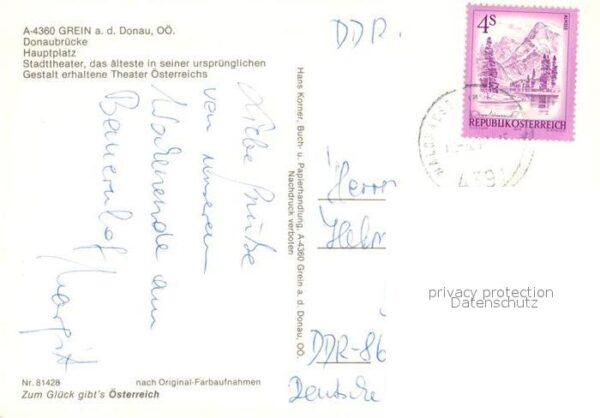 A-4360 GREIN a. d. Donau, OÖ.
Donaubrücke
Hauptplatz
Stadttheater, das älteste in seiner ursprünglichen
Gestalt erhaltene Theater Österreichs
Liebe Grüße
von unserem
Wochenende am
Bauernhof
Margit
Nr. 81428
nach Original-Farbaufnahmen
Zum Glück gibt's Österreich
Hans Korner, Buch- u. Papierhandlung, A-4360 Grein a. d. Donau, OÖ.
Nachdruck verboten
DDR
4S
ALMSEE
REPUBLIK ÖSTERREICH
4391
Herrn
DDR-86
Deutsche
privacy protection
Datenschutz